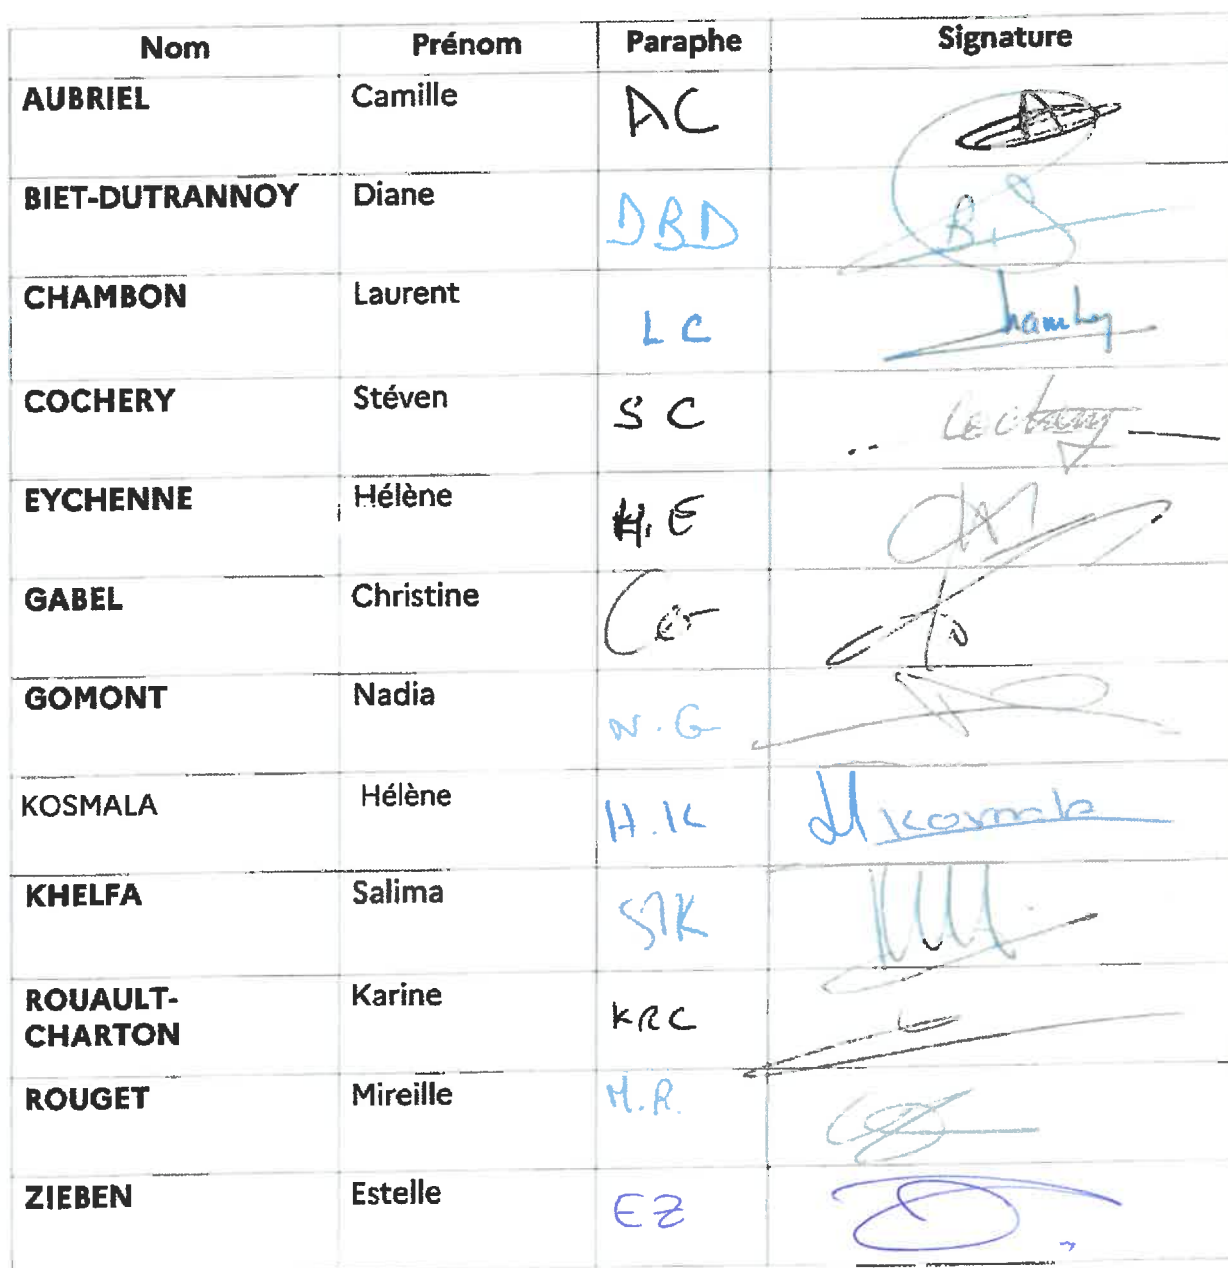 Nom Prénom Paraphe Signature
AUBRIEL Camille AC
BIET-DUTRANNOY Diane DBD
CHAMBON Laurent LC
COCHERY Stéven SC
EYCHENNE Hélène H.E
GABEL Christine
GOMONT Nadia N.G
KOSMALA Hélène H.K HKosmala
KHELFA Salima SK
ROUAULT-
CHARTON Karine KRC
ROUGET Mireille M.R.
ZIEBEN Estelle EZ